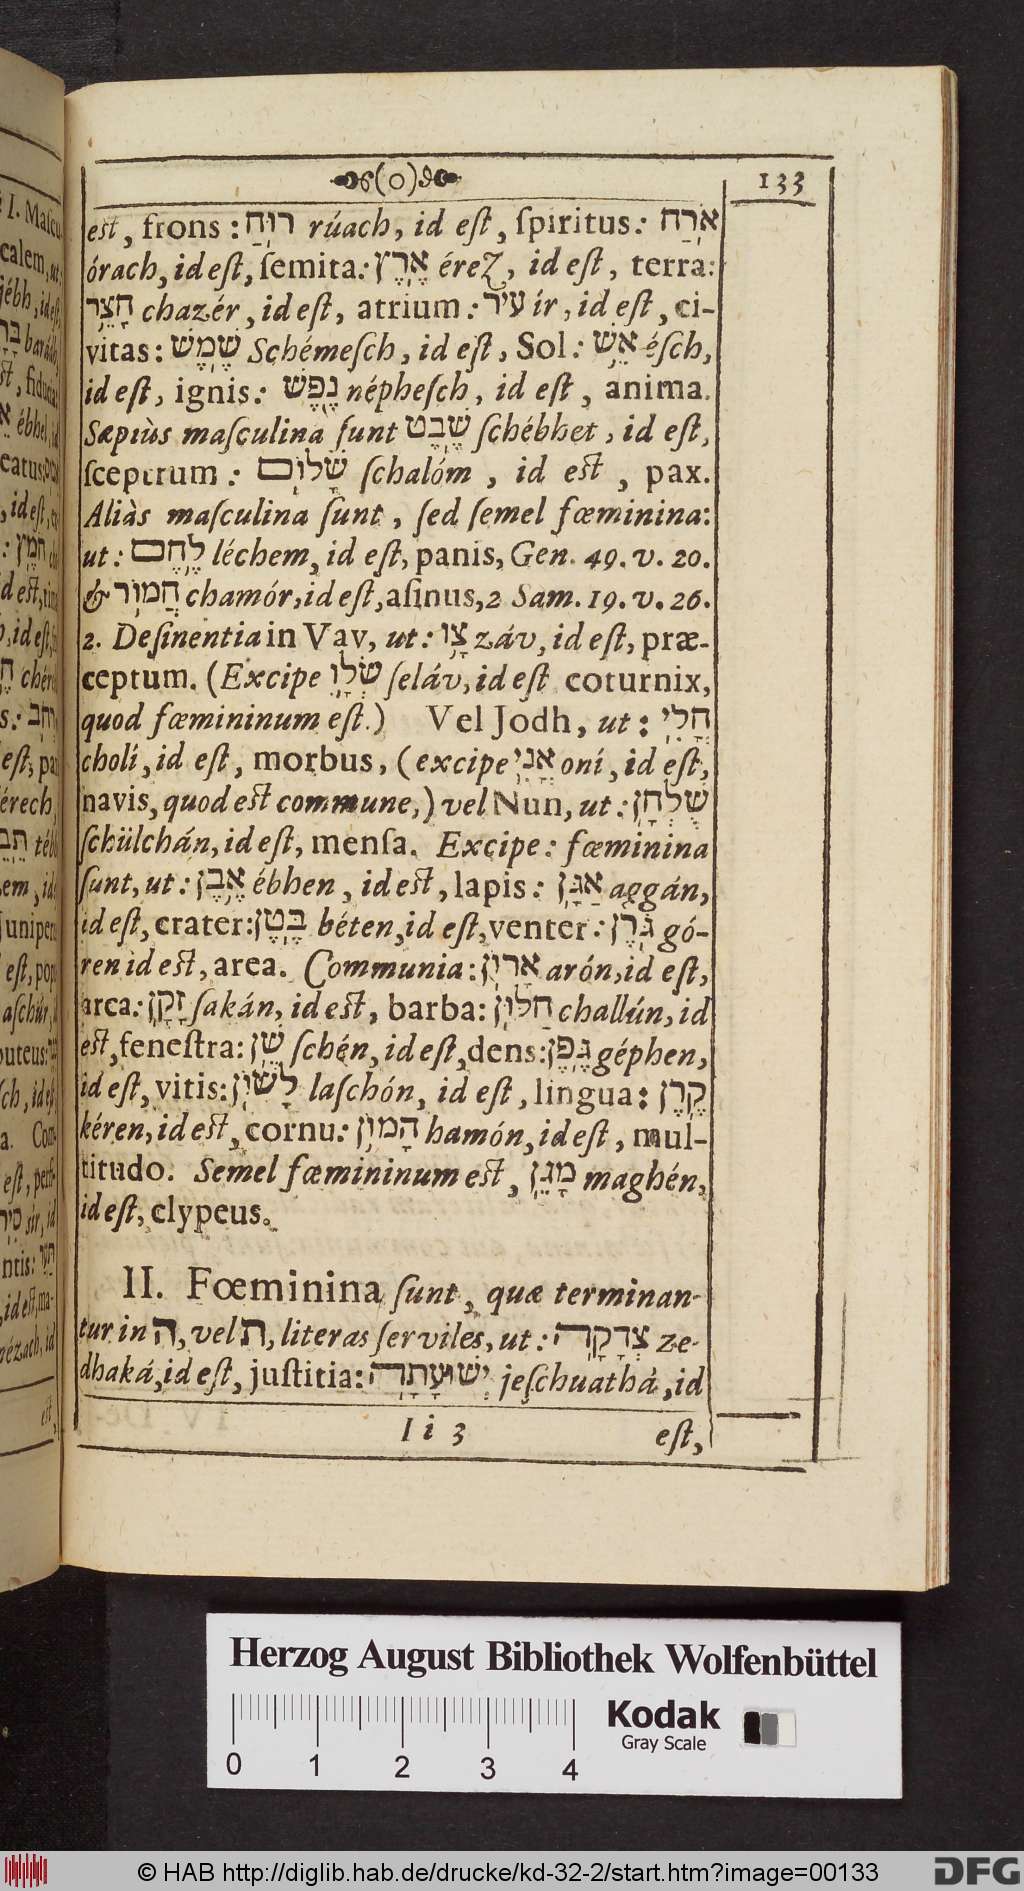 133
est, frons: רוּחַ rúach, id eſt, ſpiritus: אֹרַח
órach, id eſt, ſemita: אֶרֶץ érez, id eſt, terra:
חָצֵר chazér, id eſt, atrium: עִיר ír, id eſt, ci-
vitas: שֶׁמֶשׁ Schémeſch, id eſt, Sol: אֵשׁ éſch,
id eſt, ignis: נֶפֶשׁ népheſch, id eſt, anima.
Sæpiùs maſculina ſunt שֶׁבֶט ſchébhet, id eſt,
ſceptrum: שָׁלוֹם ſchalóm, id est, pax.
Aliàs maſculina ſunt, ſed ſemel fœminina:
ut: לֶחֶם léchem, id eſt, panis, Gen. 49. v. 20.
& חֲמוֹר chamór, id eſt, aſinus, 2 Sam. 19. v. 26.
2. Deſinentia in Vav, ut: צָו záv, id eſt, præ-
ceptum. (Excipe שְׂלָו ſeláv, id eſt coturnix,
quod fœmininum eſt.) Vel Jodh, ut: חֳלִי
cholí, id eſt, morbus, (excipe אֳנִי oní, id eſt,
navis, quod est commune,) vel Nun, ut: שֻׁלְחָן
ſchülchán, id eſt, menſa. Excipe: fœminina
ſunt, ut: אֶבֶן ébhen, id est, lapis: אַגָּן aggán,
id eſt, crater: בֶּטֶן béten, id eſt, venter: גֹּרֶן gó-
ren id est, area. Communia: אָרוֹן arón, id eſt,
arca: זָקָן ſakán, id est, barba: חַלּוֹן challún, id
est, feneſtra: שֵׁן ſchén, id eſt, dens: גֶּפֶן géphen,
id eſt, vitis: לָשׁוֹן laſchón, id eſt, lingua: קֶרֶן
kéren, id est, cornu: הָמוֹן hamón, id eſt, mul-
titudo. Semel fœmininum est, מָגֵן maghén,
id eſt, clypeus.
II. Fœminina ſunt, quæ terminan-
tur in ה, vel ת, literas ſerviles, ut: צְדָקָה ze-
dhaká, id eſt, juſtitia: יְשׁוּעָתָה jeſchuathá, id
I i 3
eſt,
Herzog August Bibliothek Wolfenbüttel
Kodak
Gray Scale
0 1 2 3 4
© HAB http://diglib.hab.de/drucke/kd-32-2/start.htm?image=00133
DFG